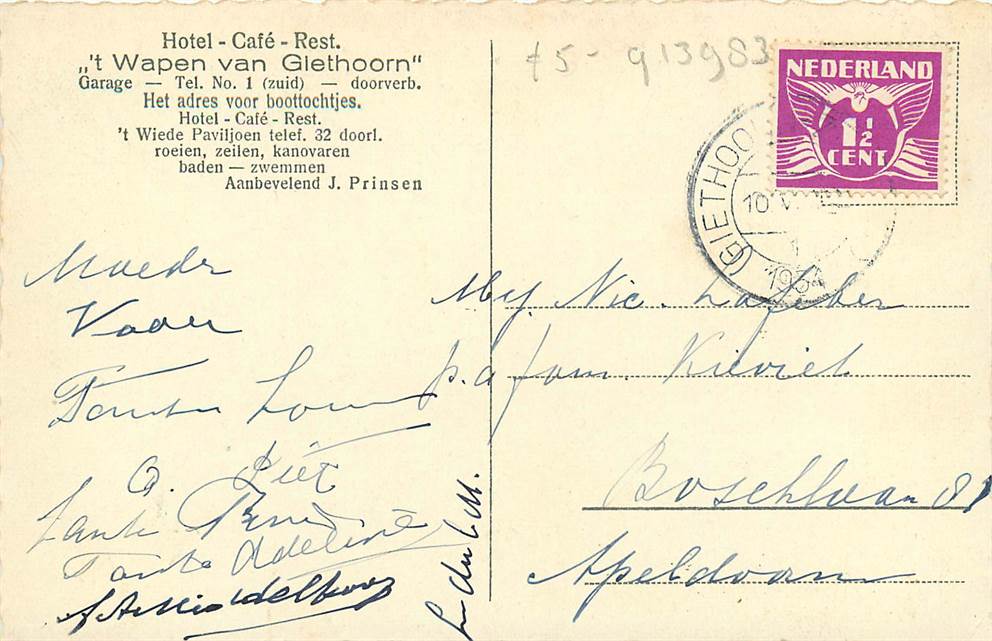 Hotel - Café - Rest.
„'t Wapen van Giethoorn"
Garage — Tel. No. 1 (zuid) — doorverb.
Het adres voor boottochtjes.
Hotel - Café - Rest.
't Wiede Paviljoen telef. 32 doorl.
roeien, zeilen, kanovaren
baden — zwemmen
Aanbevelend J. Prinsen
f5- 913983
NEDERLAND
1½
CENT
GIETHOO
10
193
Moeder
Vader
Tante Lou
O. Piet
Tante
Tante Adeline
Mej. Nic. Lafeber
p.a fam. Kieviet
Boschlaan 81
Apeldoorn